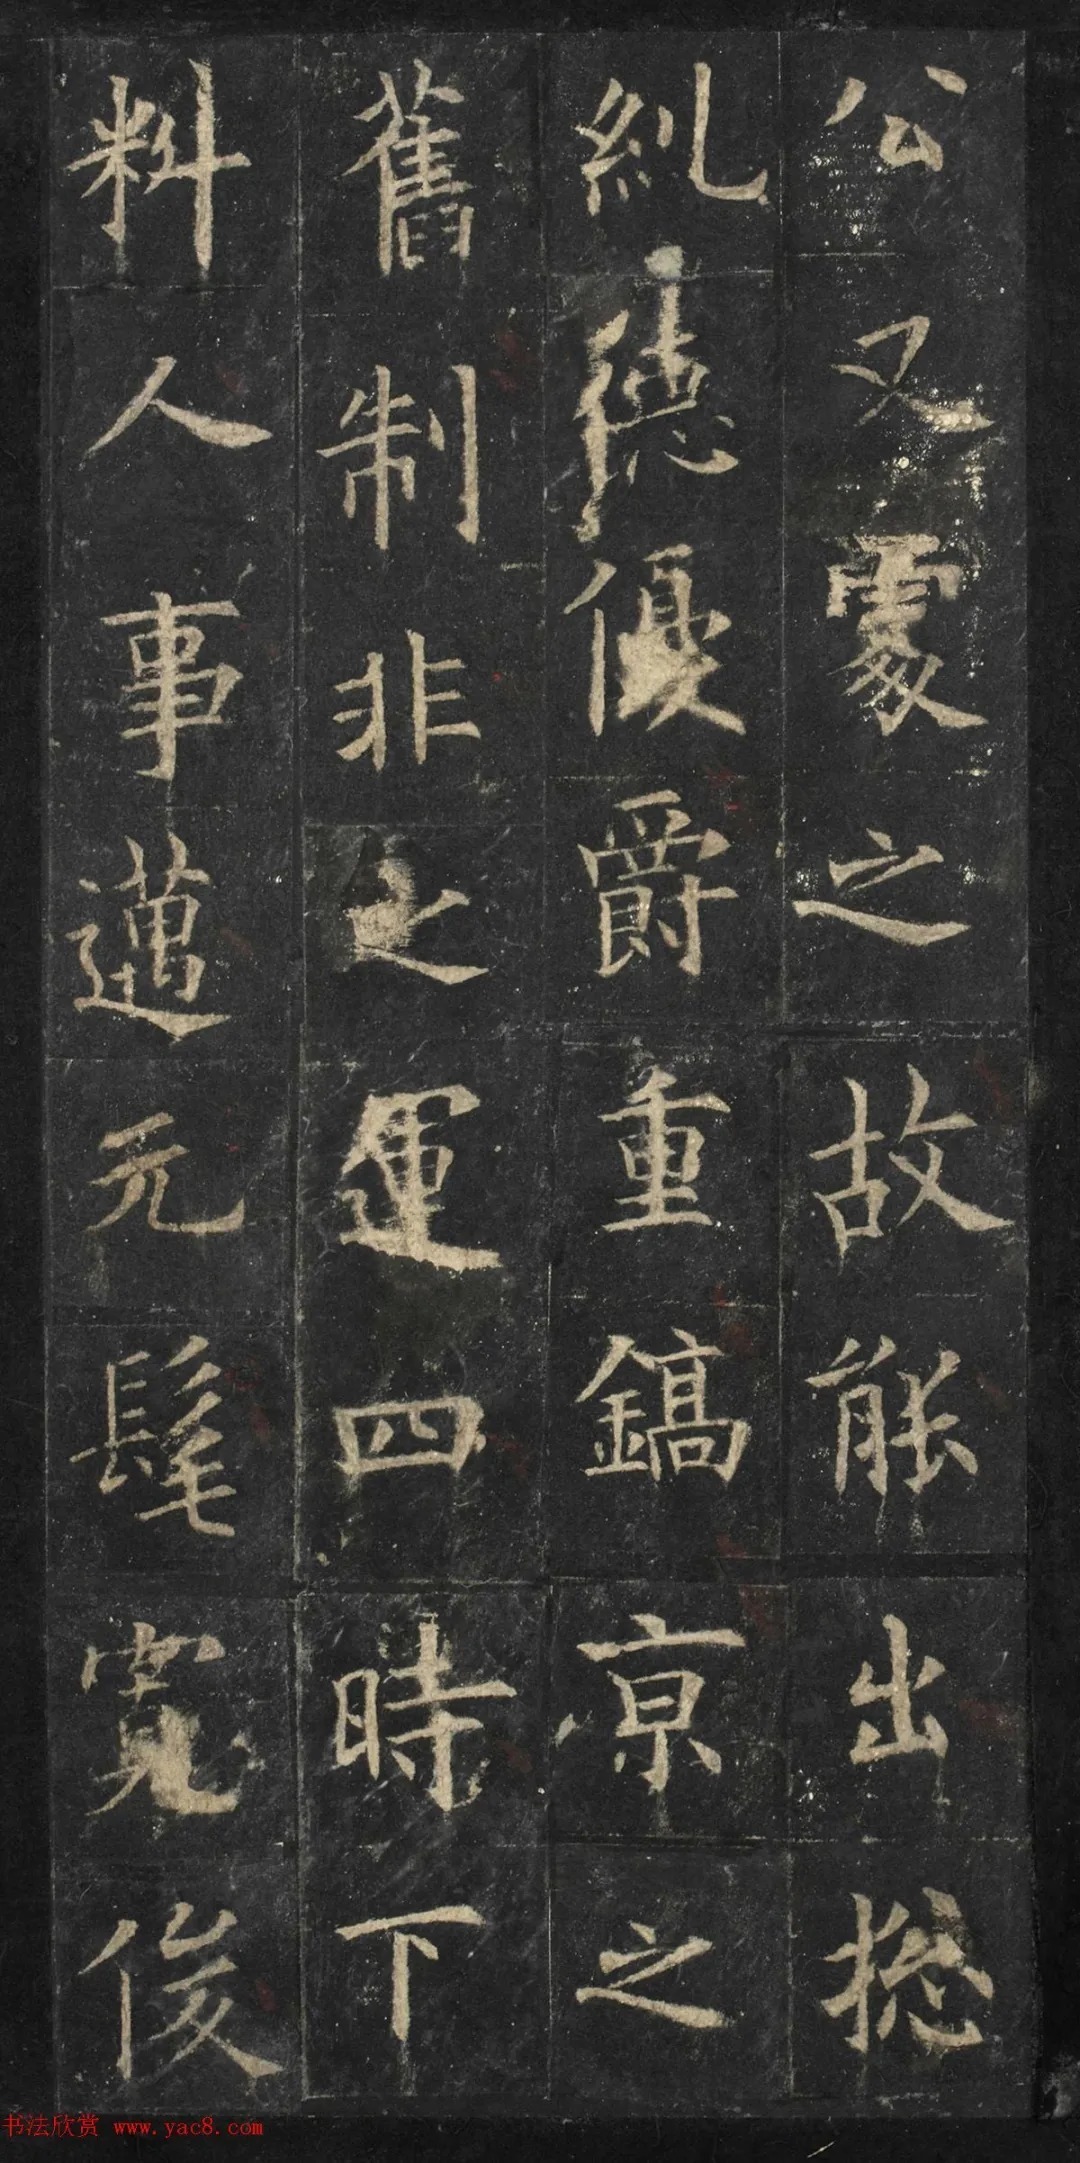 公又處之故能出揔
糺德優爵重鎬京之
舊制非之運四時下
料人事邁元髦寬俊
书法欣赏 www.yac8.com